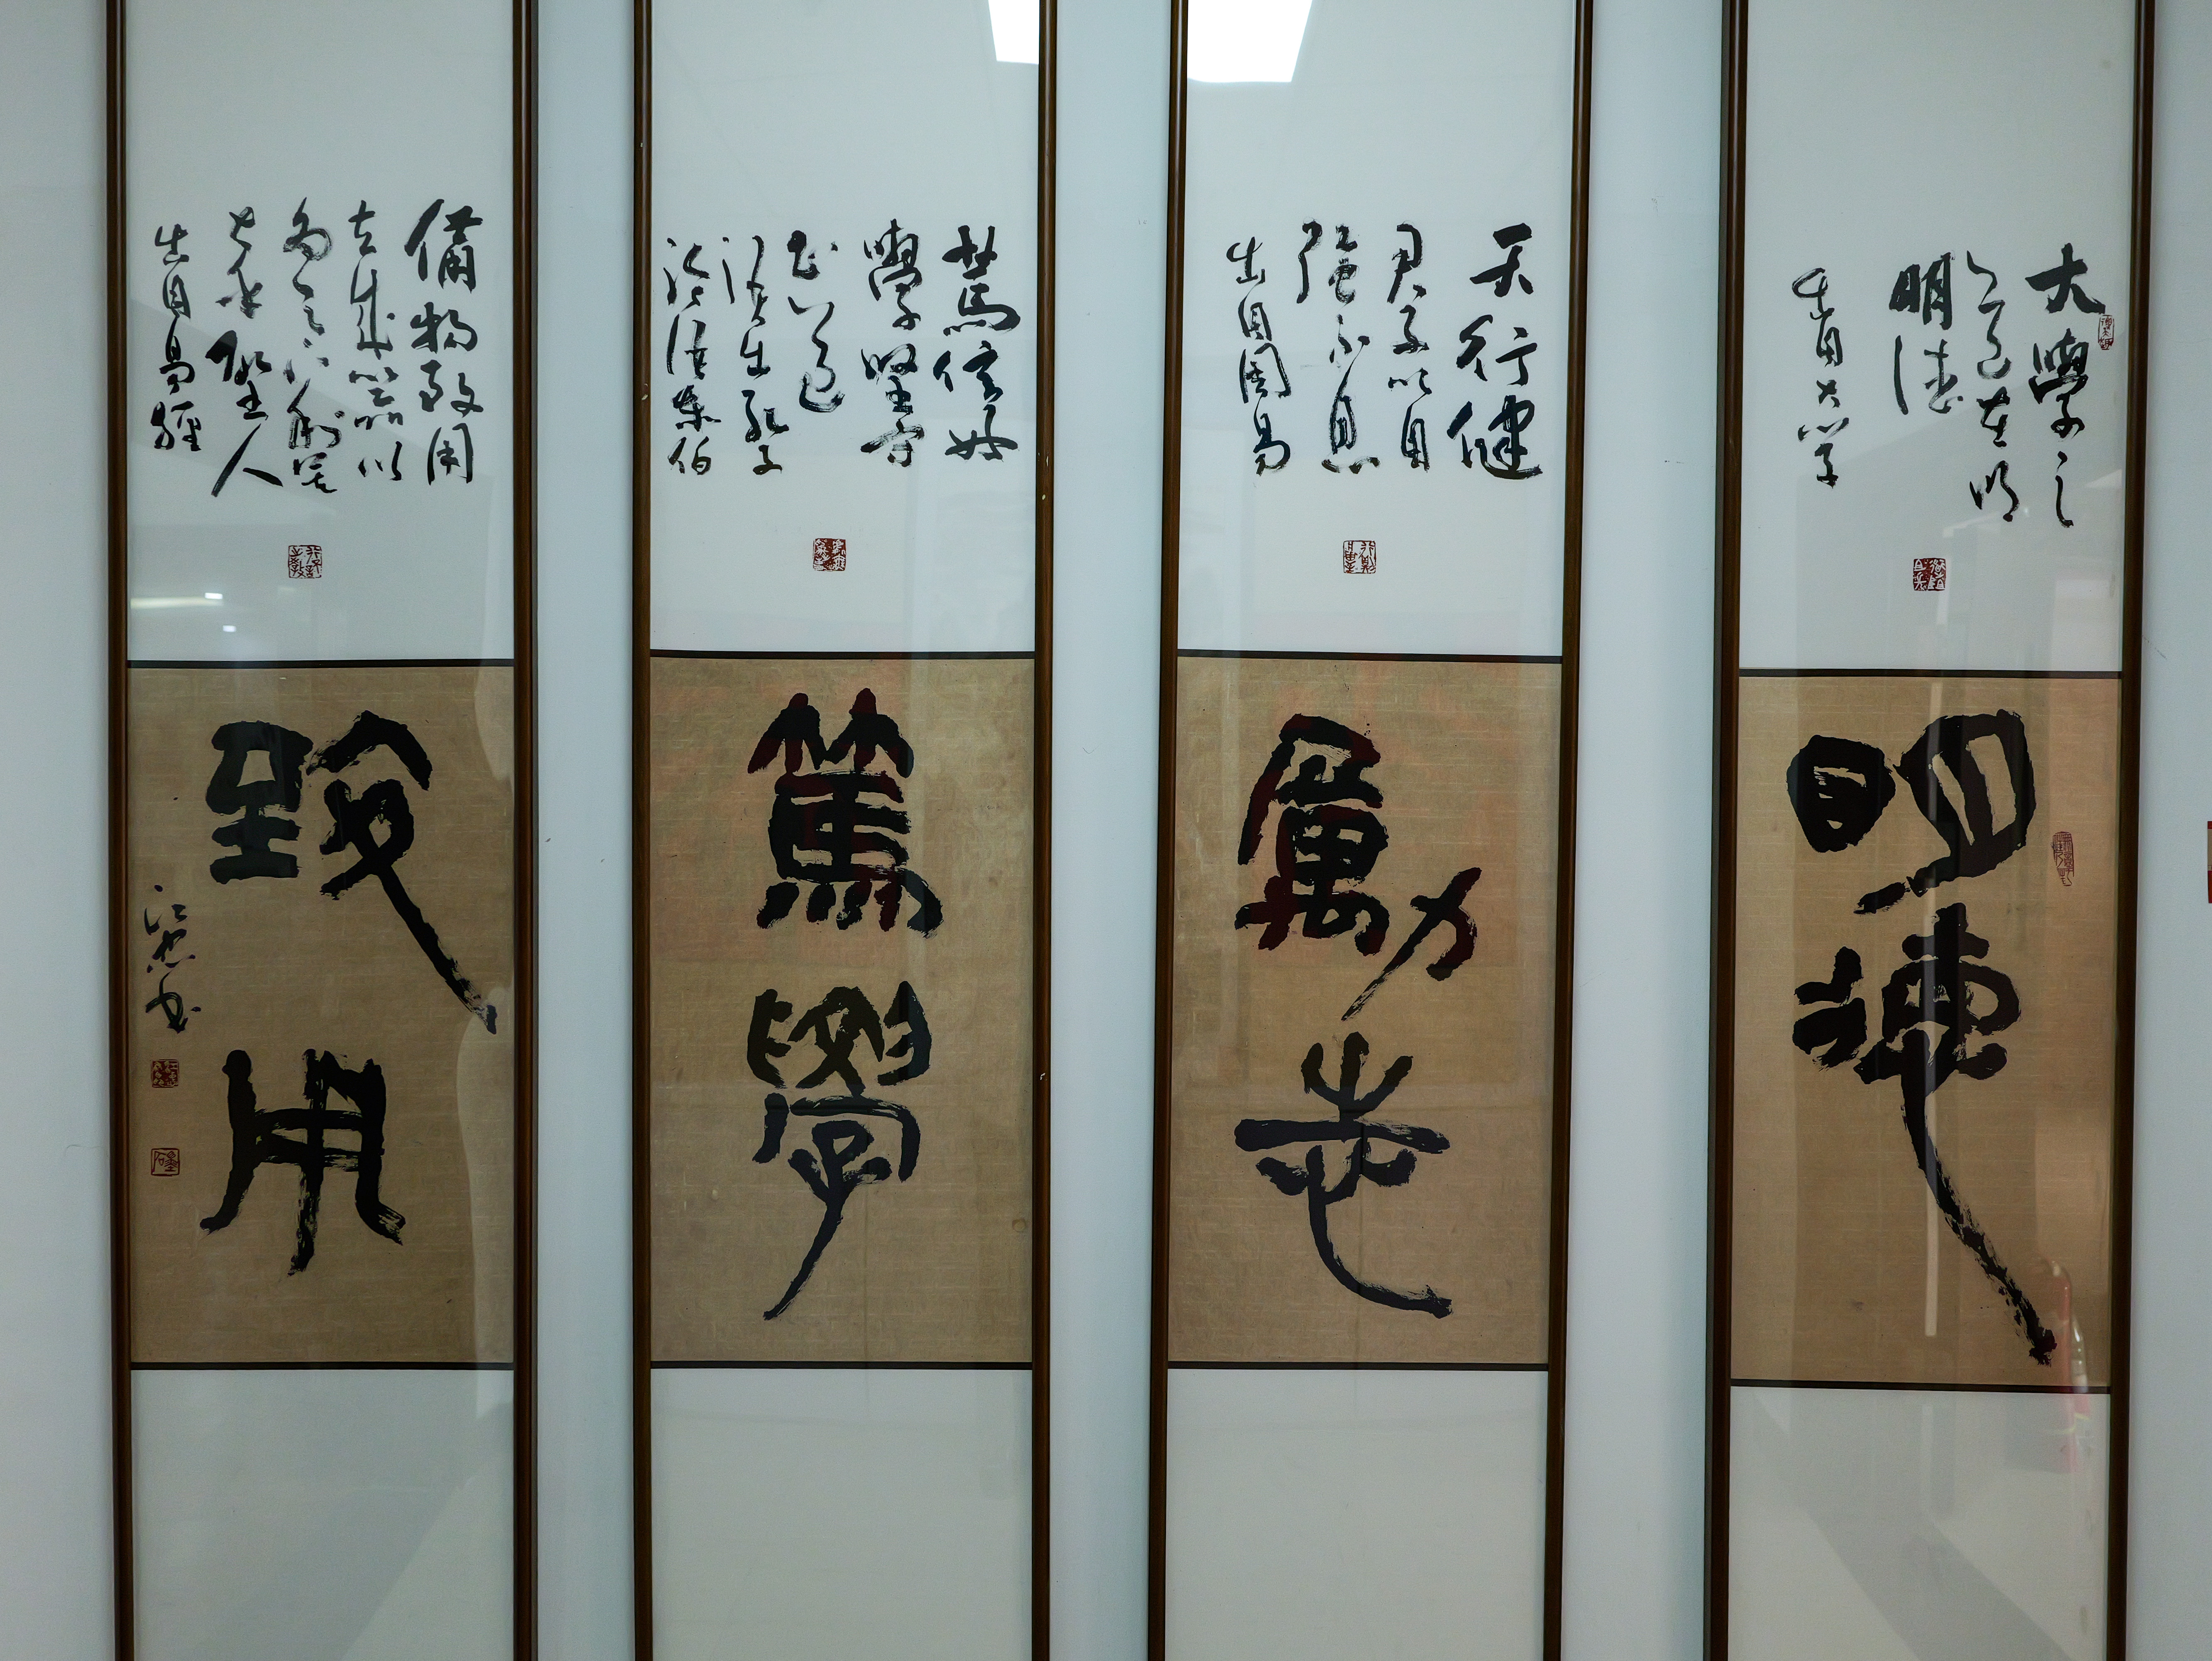 大學之
道在明
明德
出自大学
明德
天行健
君子以自
强不息
出自周易
勵志
篤信好
學堅守
善道
語出孔子
論語泰伯
篤學
備物致用
立成器以
為天下利莫
大乎聖人
出自易經
致用